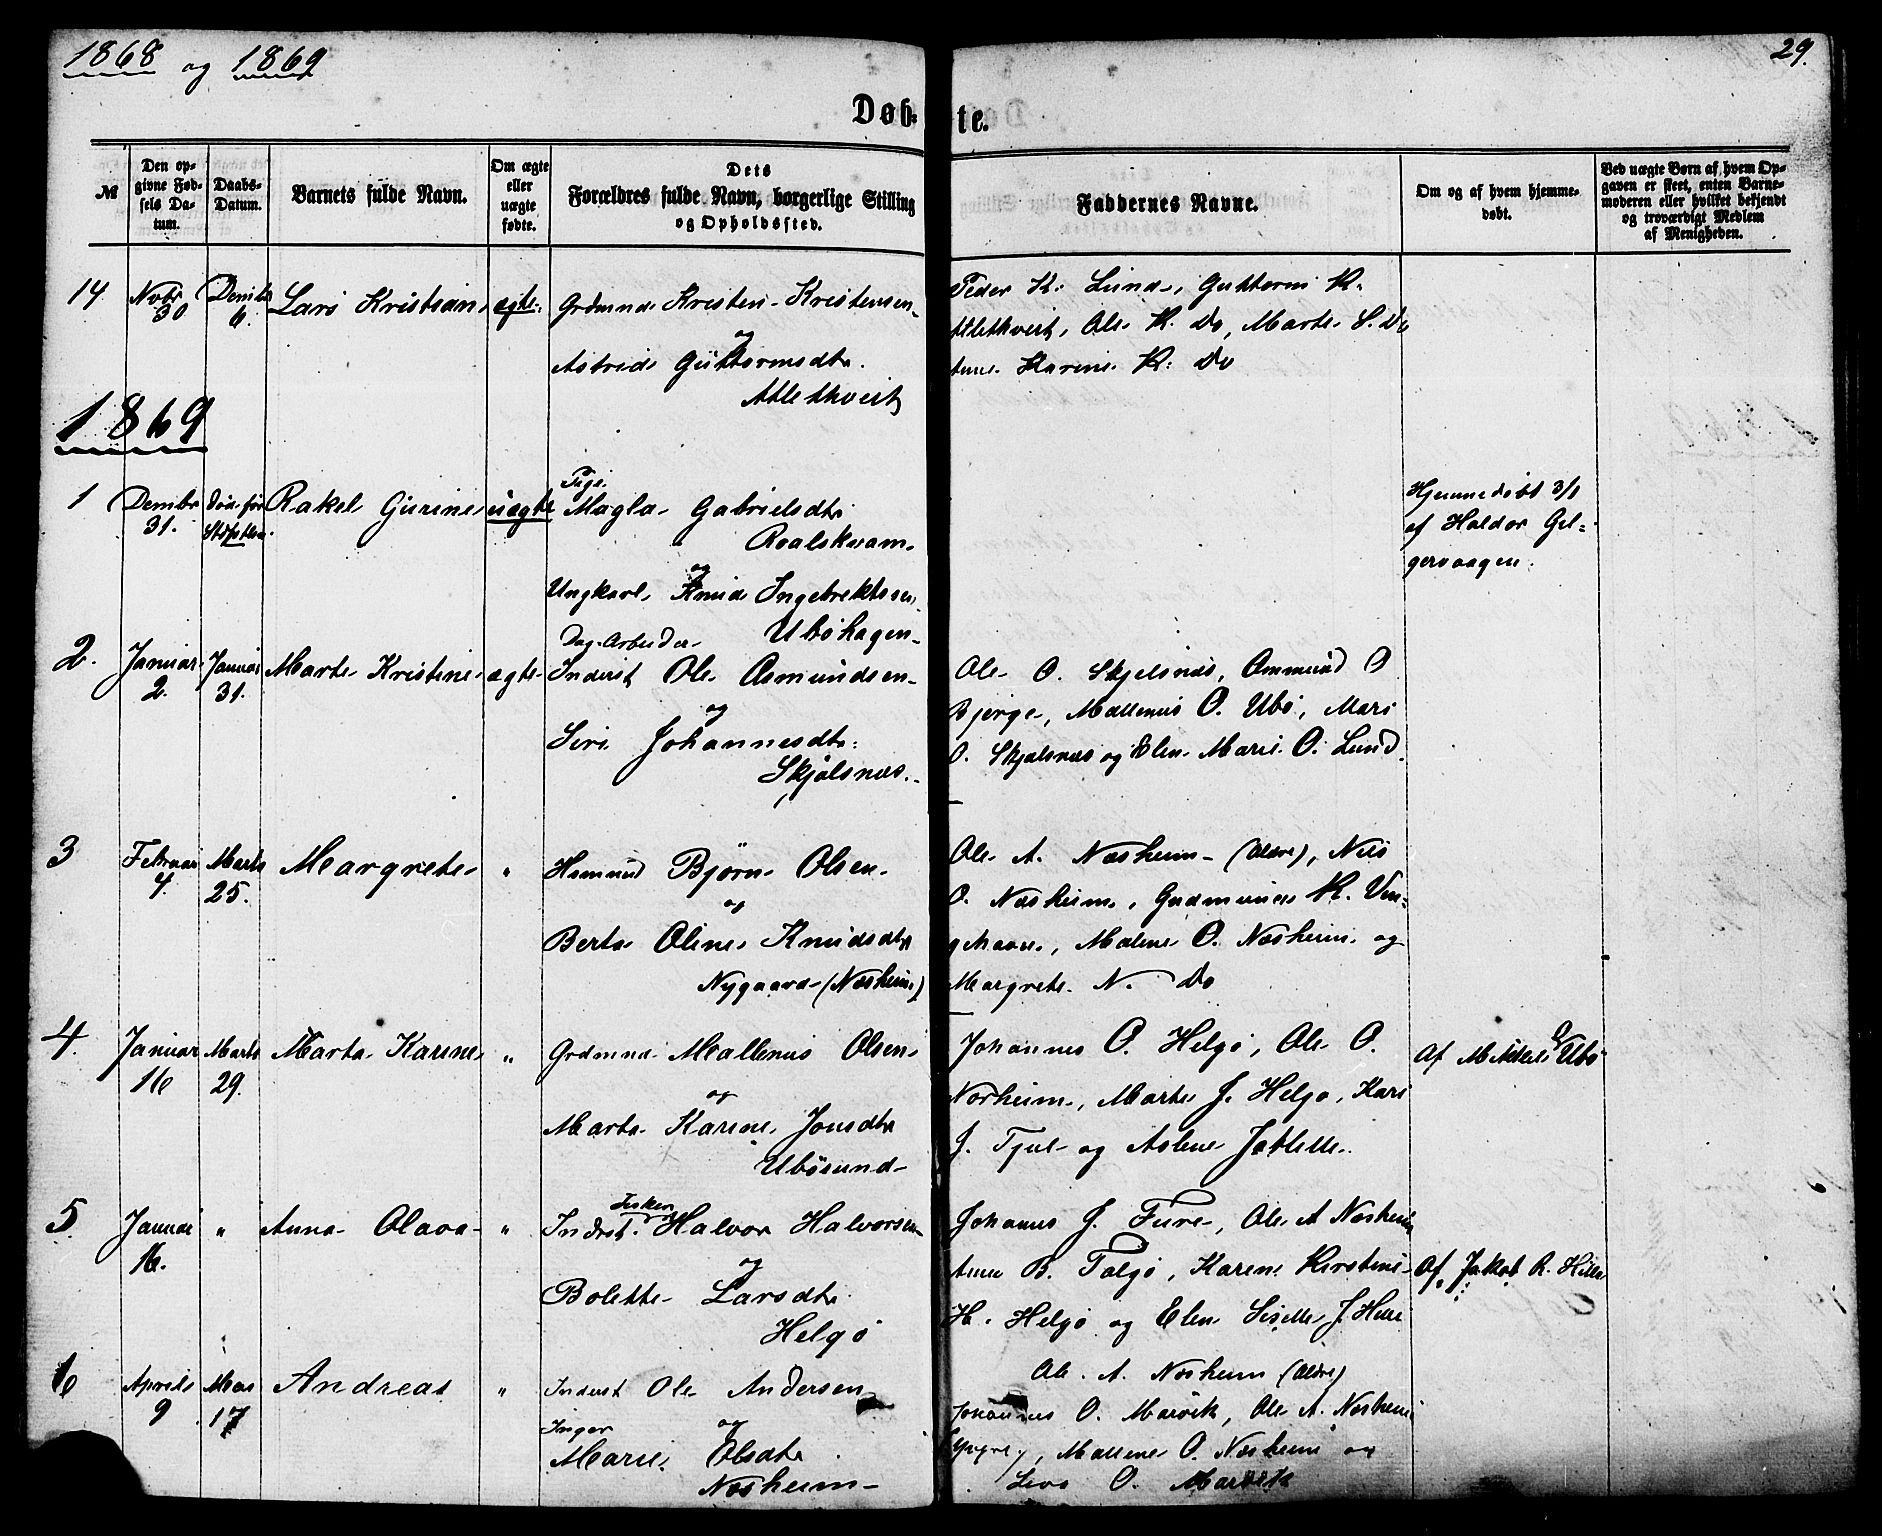 1868 og 1869
29.
Døb- te.
№
Den op-
givne Fød-
sels Da-
tum.
Daabs-
Datum.
Barnets fulde Navn.
Om ægte
eller
uægte
fødte.
Dets
Forældres fulde Navn, borgerlige Stilling
og Opholdssted.
Faddernes Navne.
Om og af hvem hjemme-
døbt.
Ved uægte Børn af hvem Op-
gaven er skeet, enten Barne-
moderen eller hvilket bekjendt
og troværdigt Medlem
af Menigheden.
14 Novbr 30 Dembr 6. Lars Kristian ægte. Grdmnd Kristen Kristensen
og
Astrid Guttormsdtr.
Atlethveit
Peder K. Lund, Guttorm K.
Atlethveit, Ole K. Do, Marte S. Do
Anne Karine K. Do
1869
1 Dembr 31. Død før Rakel Gurine uægte
Pige
Magla Gabrielsdtr
Roalskvam
og
Ungkarl Knud Ingebrektsen
Ubøhagen
Hjemmedøbt 3/1
af Haldor Gil-
gervaagen.
2. Januar 2. Januar 31. Marte Kristine ægte
Dag-Arbeider
Inderst Ole Asmundsen
og
Siri Johannesdtr.
Skjølsnæs.
Ole O. Skjelsnæs, Ommund O
Bjerge, Mallenus O. Ubø, Mari
O. Skjølsnæs og Elen Marie O. Lund
3 Februar 4. Marts 25. Margrete " Husmnd Bjørn Olsen
og
Berta Oline Knudsdtr
Nygaard (Næsheim)
Ole A. Næsheim (Ældre), Nils
O. Næsheim, Gudmund K. Ven-
, Malene O. Næsheim og
Margrete N. Do
4. Januar 16 Marts 29. Marta Karine " Grdmnd Mallenus Olsen
og
Marta Karine Jonsdtr
Ubøsund
Johannes O. Helgø, Ole O.
Norheim, Marte J. Helgø, Kari
J. Tjul og Aslene
Af M. Ubø
5. Januar 16. " Anna Olava "
Fisker
Inderst Halvor Halvorsen
og
Bolette Larsdtr
Helgø
Johannes J. Fure, Ole A Næsheim
Anne B. Talgø, Karen Kirstine
H. Helgø og Elen Siselle J.
Af Jakob R.
6 Aprils 9 Mai 17 Andreas " Inderst Ole Andersen
og
Inger
Marie Olsdtr
Næsheim
Ole A. Næsheim (Ældre)
Johannes O. Marvik, Ole A. Næsheim
(Yngre), Mallene O. Næsheim og
Siva O. Marvik